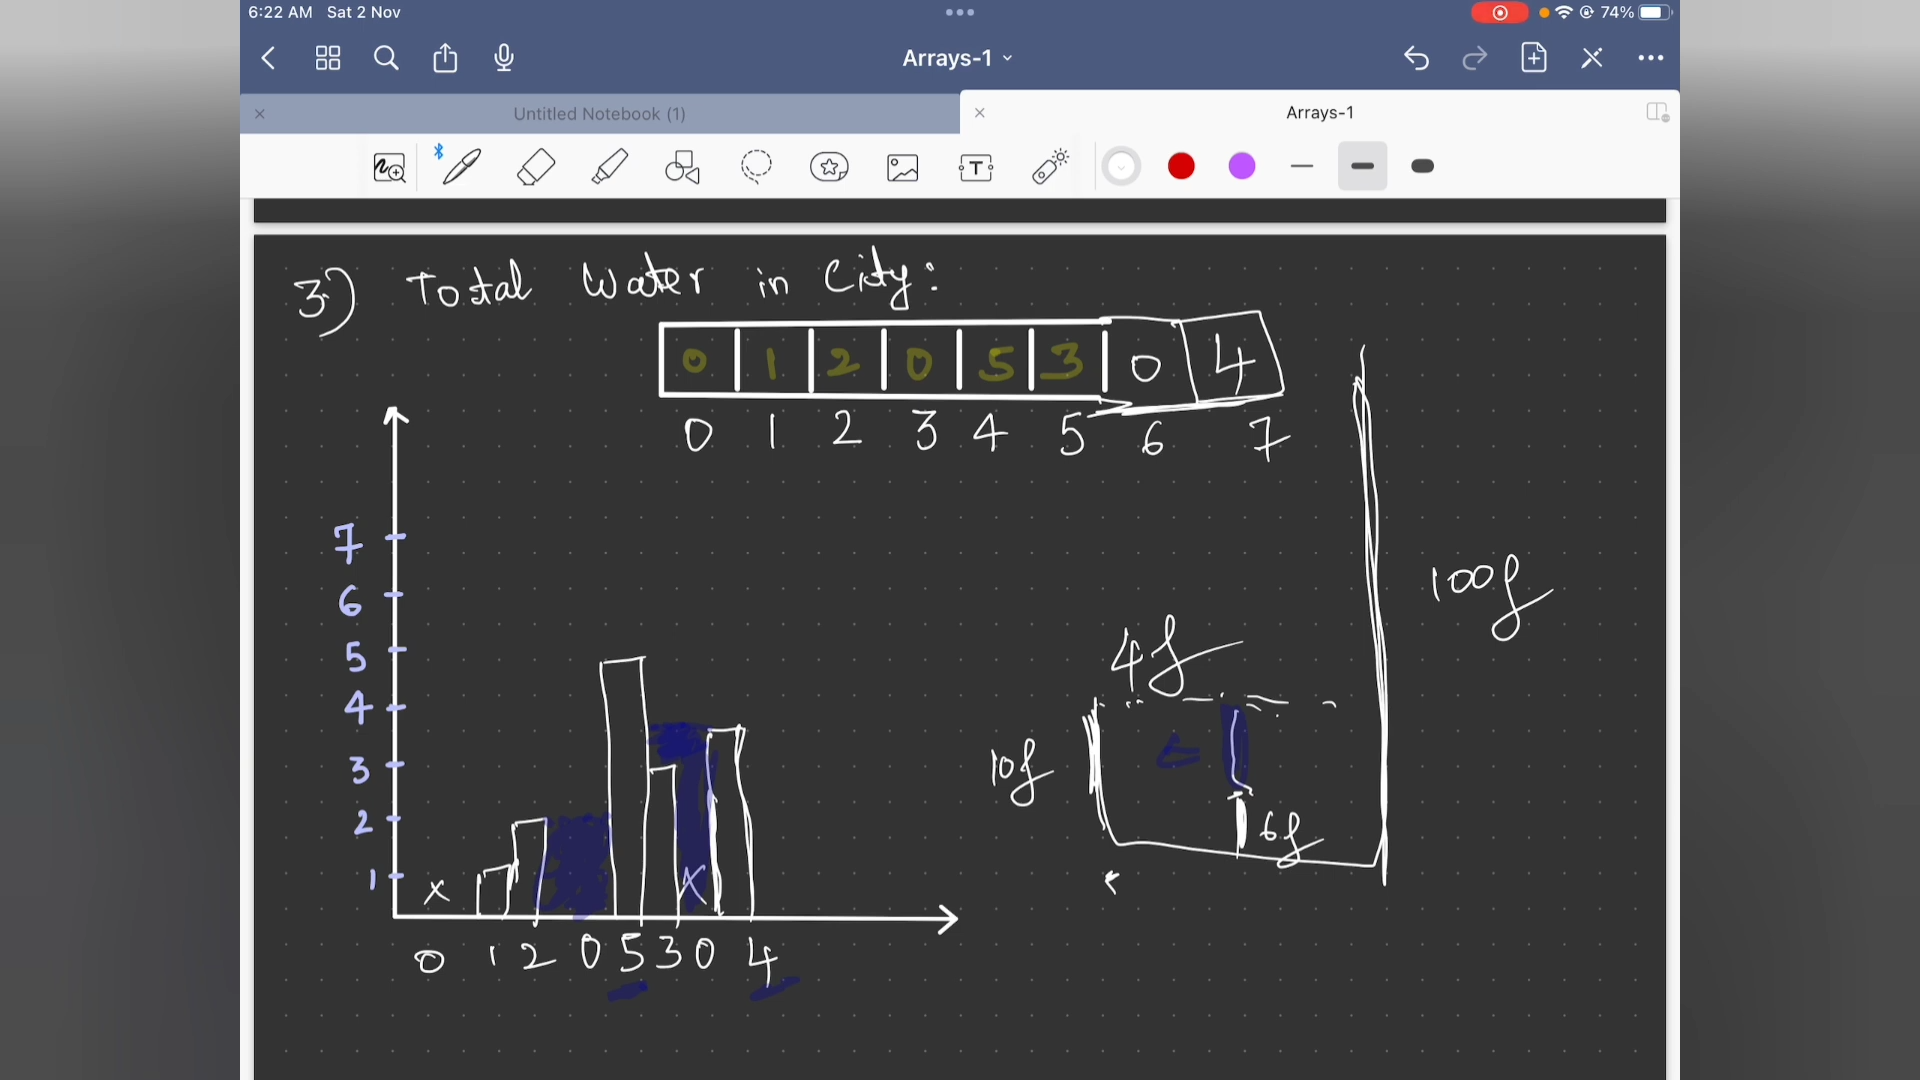 6:22 AM Sat 2 Nov
74%
Arrays-1
Untitled Notebook (1)
Arrays-1
T
3) Total Water in City:
0 1 2 0 5 3 0 4
0 1 2 3 4 5 6 7
7
6
5
4
3
2
1
x
x
0 1 2 0 5 3 0 4
100f
4f
10f
6f